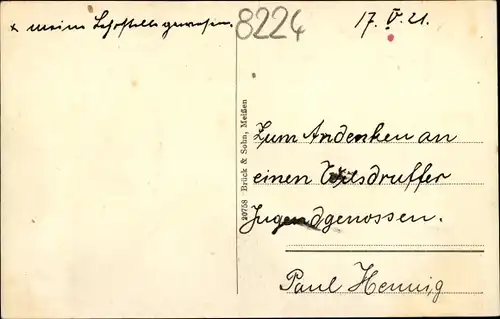 x meine Lehrstelle gewesen.
8224
17. V. 21.
20758 Brück & Sohn, Meißen
Zum Andenken an
einen Wilsdruffer
Jugendgenossen.
Paul Hennig